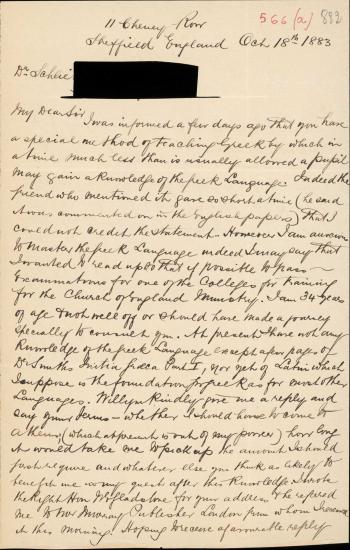 566 (a) 882
11 Cheney Row
Sheffield England Oct 18th 1883
Dr Schlie
My Dear Sir
I was informed a few days ago that you have
a special method of teaching Greek by which in
a time much less than is usually allowed a pupil
may gain a knowledge of the Greek Language. Indeed the
friend who mentioned it gave so short a time (he said
it was commented on in the English papers) that I
could not credit the statement - However I am anxious
to master the Greek Language indeed I may say that
I wanted to read up so that if possible to pass
Examinations for one of the Colleges for training
for the Church of England Ministry. I am 34 years
of age & not well off or should have made a journey
specially to consult you. At present I have not any
knowledge of the Greek Language except a few pages of
Dr Smiths Initia Græca Part I, nor yet of Latin which
I suppose is the foundation for Greek as for most other
Languages. Will you kindly give me a reply and
say your terms - whether I should have to come to
Athens, (which at present is out of my power) how long
it would take me to pick up the amount I should
just require and whatever else you think as likely to
benefit me in my quest after this knowledge I wrote
the Right Hon W E Gladstone for your address & he referred
me to Mr Murray Publisher London from whom I received
it this morning. Hoping to receive a favorable reply